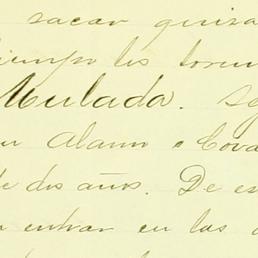 sacar quiza
iempo los torm
Mulada. Se
Alamo e Cova
de dos años. De es
entrar en las